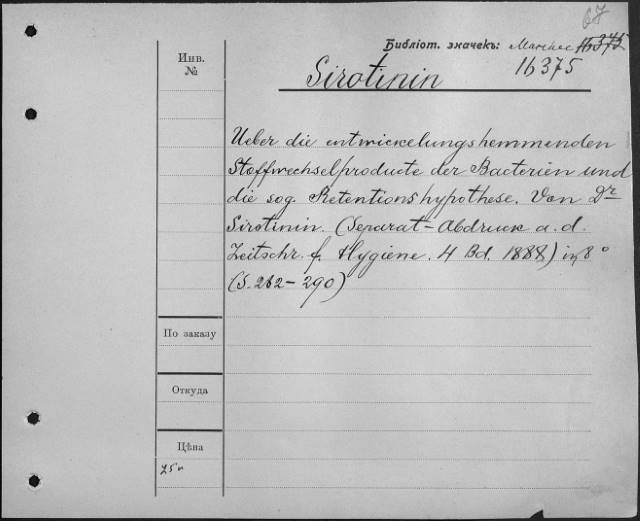 67
Библіот. значекъ: 16375
16375
Инв.
№
Sirotinin
Ueber die entwickelungshemmenden
Stoffwechselproducte der Bacterien und
die sog. Retentionshypothese. Von Dr
Sirotinin. (Separat-Abdruck a. d.
Zeitschr. f. Hygiene. 4 Bd. 1888) in 8°
(S. 262-290)
По заказу
Откуда
Цѣна